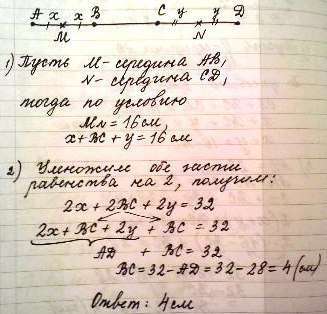 A x x B C y y D
M N
1) Пусть M - середина AB,
N - середина CD,
тогда по условию
MN = 16 см
x + BC + y = 16 см
2) Умножим обе части
равенства на 2, получим:
2x + 2BC + 2y = 32
2x + BC + 2y + BC = 32
AD + BC = 32
BC = 32 - AD = 32 - 28 = 4 (см)
Ответ: 4 см